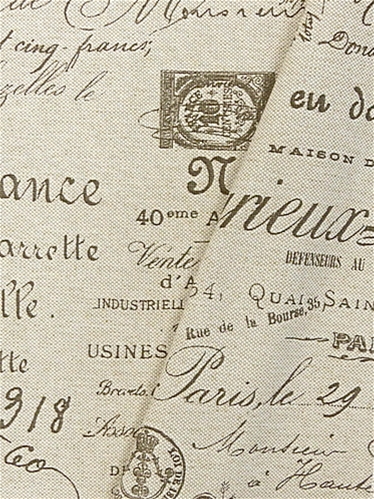 de Monsieur
cinq francs,
zelles le
Dona
en do
MAISON D
ance
N
rieux
40eme A
arrette
Vente
DEFENSEURS AU
d'A
54, QUAI SAIN
INDUSTRIELL
35,
lle.
Rue de la Bourse,
PAR
USINES
tte
Paris, le 29
918
Asso
Monsieur
DE
à Haute